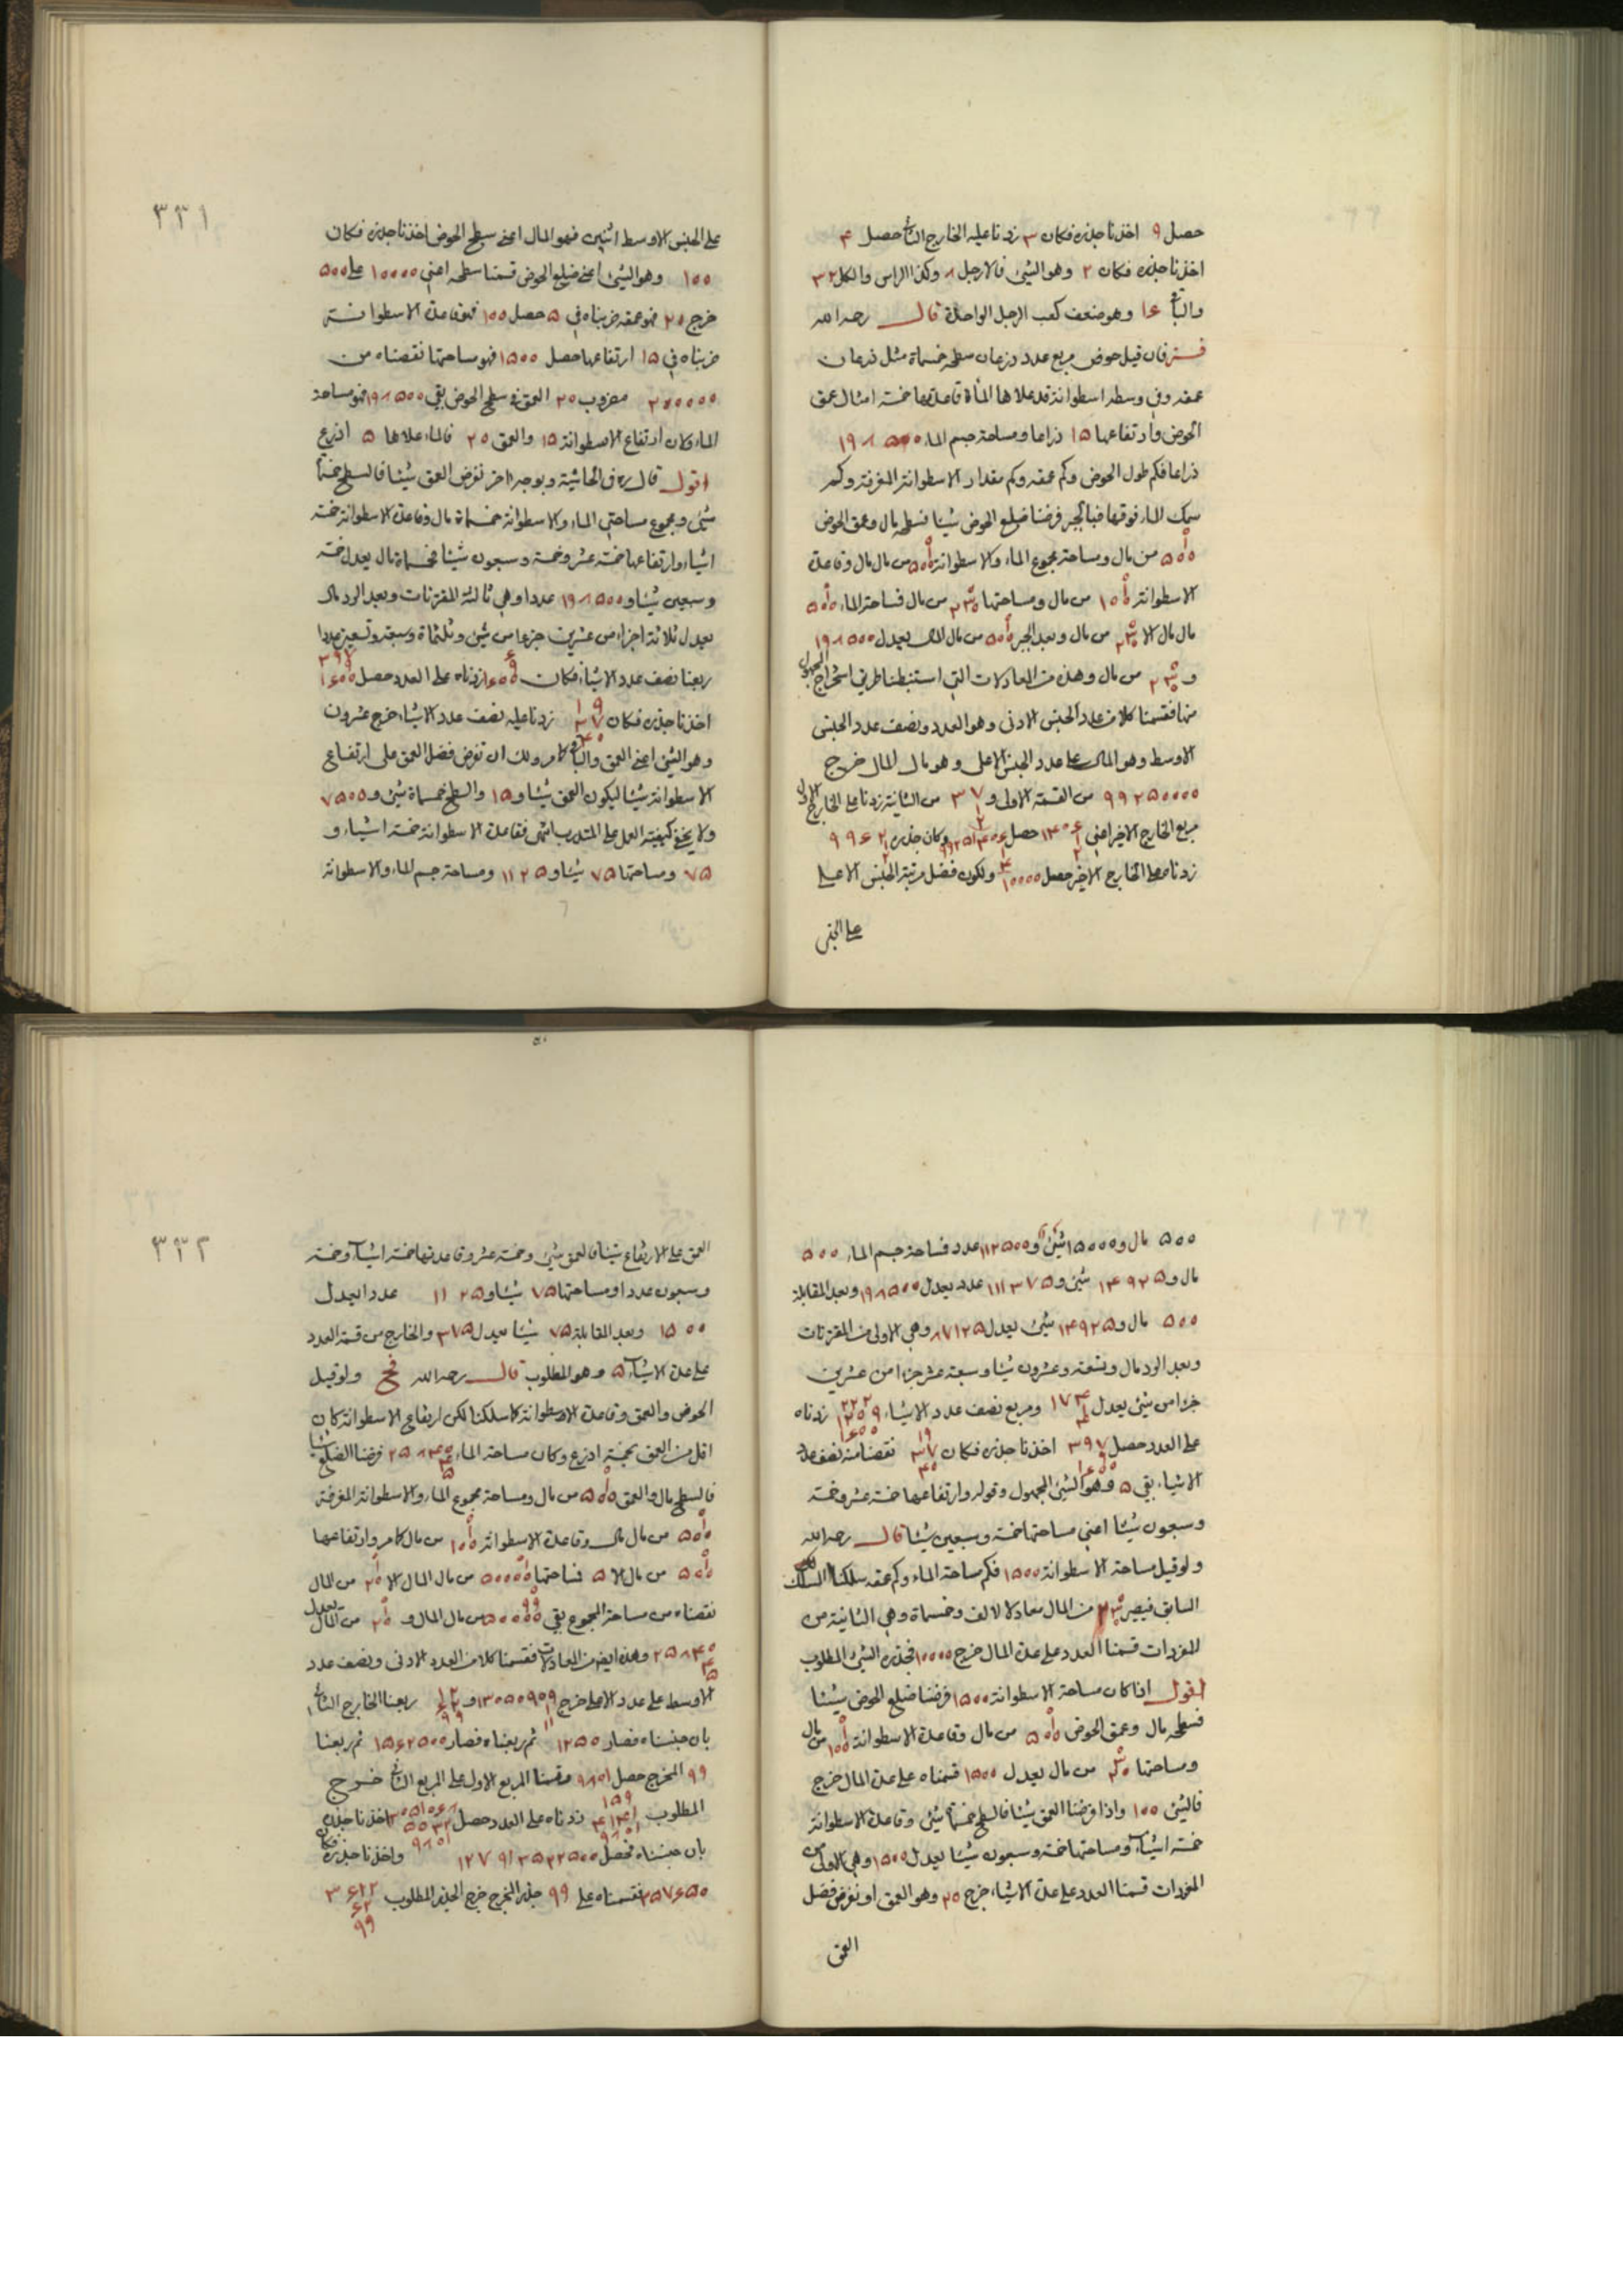 حصل ۹ اخذنا جذره فكان ۳ زدنا عليه الخارج الثانى حصل ۴
اخذنا جذره فكان ۲ وهو الشئ فالارجل ۸ وكذا الراس والكل ۳۲
وهو ضعف كعب الرجل الواحدة قال رحمه الله
فان قيل حوض مربع عدد ذرعان سطحه خمسماة مثل ذرعان
عمقه وفى وسطه اسطوانة قد علاها الماء قاعدتها خمسة امثال عمق
الحوض وارتفاعها ۱۵ ذراعا ومساحة جسم الماء ۱۹۸۵۰۰
ذراعا فكم طول الحوض وكم عمقه وكم مقدار الاسطوانة المغرقة وكم
سمك الماء فوقها فبالجبر فرضنا ضلع الحوض شيئا فسطحه مال وعمق الحوض
۵۰۰ من مال ومساحة مجموع الماء والاسطوانة ۵۰۰ من مال مال وقاعدة
الاسطوانة ۱۰۰ من مال ومساحتها من مال فمساحة الماء ۵۰۰
مال مال الا من مال وبعد الجبر ۵۰۰ من مال المال يعدل ۱۹۸۵۰۰
و من مال وهذه من المعادلات التى استنبطنا طريق استخراج المجهول
منها فقسمنا كلا من عدد الجنس الادنى وهو العدد ونصف عدد الجنس
الاوسط وهو المال على عدد الجنس الاعلى وهو مال المال خرج
۹۹۲۵۰۰۰۰ من القسمة الاولى و ۳۷ من الثانية زدنا على الخارج الاول
مربع الخارج الاخير اعنى ۱۴۰۶ حصل وكان جذره ۹۹۶۲
زدناه على الخارج الاخير حصل ۱۰۰۰۰ ولكون فضل مرتبة الجنس الاعلى
على الجنس
۳۳۱
على الجنس الاوسط اثنين فهو المال اعنى سطح الحوض اخذنا جذره فكان
۱۰۰ وهو الشئ اعنى ضلع الحوض قسمنا سطحه اعنى ۱۰۰۰۰ على ۵۰۰
خرج ۲۰ فهو عمقه ضربناه فى ۵ حصل ۱۰۰ فهو قاعدة الاسطوانة
ضربناه فى ۱۵ ارتفاعها حصل ۱۵۰۰ فهو مساحتها نقصناه من
۲۰۰۰۰۰ مضروب ۲۰ العمق فى سطح الحوض بقى ۱۹۸۵۰۰ فهو مساحة
الماء وكان ارتفاع الاسطوانة ۱۵ والعمق ۲۰ فالماء علاها ۵ اذرع
اقول قال ره فى الحاشية وبوجه اخر نفرض العمق شيئا فالسطح خمسماة
شئ ومجموع مساحتى الماء والاسطوانة خمسماة مال وقاعدة الاسطوانة خمسة
اشياء وارتفاعها خمسة عشر وخمسة وسبعون شيئا فخمسماة مال يعدل خمسة
وسبعين شيئا و ۱۹۸۵۰۰ عددا وهى ثالثة المقترنات وبعد الرد مال
يعدل ثلاثة اجزاء من عشرين جزءا من شئ وثلثماة وسبعة وتسعين عددا
ربعنا نصف عدد الاشياء فكان زدناه على العدد حصل
اخذنا جذره فكان زدنا عليه نصف عدد الاشياء خرج عشرون
وهو الشئ اعنى العمق والباقى كما مر ولك ان تفرض فضل العمق على ارتفاع
الاسطوانة شيئا ليكون العمق شيئا و ۱۵ والسطح خمسماة شئ و ۷۵۰۰
ولا يخفى كيفية العمل على المتدرب انتهى فقاعدة الاسطوانة خمسة اشياء و
۷۵ ومساحتها ۷۵ شيئا و ۱۱۲۵ ومساحة جسم الماء والاسطوانة
۵۰۰ مال و ۱۵۰۰۰ شئ و ۱۱۲۵۰۰ عدد فمساحة جسم الماء ۵۰۰
مال و ۱۴۹۲۵ شئ و ۱۱۱۳۷۵ عدد يعدل ۱۹۸۵۰۰ وبعد المقابلة
۵۰۰ مال و ۱۴۹۲۵ شئ يعدل ۸۷۱۲۵ وهى الاولى من المقترنات
وبعد الرد مال وتسعة وعشرون شيئا وسبعة عشر جزءا من عشرين
جزءا من شئ يعدل ۱۷۴ ومربع نصف عدد الاشياء زدناه
على العدد حصل ۳۹۷ اخذنا جذره فكان نقصنا منه نصف عدد
الاشياء بقى ۵ وهو الشئ المجهول وقوله وارتفاعها خمسة عشر وخمسة
وسبعون شيئا اعنى مساحتها خمسة وسبعين شيئا قال رحمه الله
ولو قيل مساحة الاسطوانة ۱۵۰۰ فكم مساحة الماء وكم عمقه سلكنا المسلك
السابق فيصير من المال معادلا لالف وخمسماة وهى الثانية من
المفردات قسمنا العدد على عدة المال خرج ۱۰۰۰۰ فجذره الشئ المطلوب
اقول اذا كان مساحة الاسطوانة ۱۵۰۰ فرضنا ضلع الحوض شيئا
فسطحه مال وعمق الحوض ۵۰۰ من مال وقاعدة الاسطوانة ۱۰۰ من مال
ومساحتها من مال يعدل ۱۵۰۰ قسمناه على عدة المال خرج
فالشئ ۱۰۰ واذا فرضنا العمق شيئا فالسطح خمسماة شئ وقاعدة الاسطوانة
خمسة اشياء ومساحتها خمسة وسبعون شيئا يعدل ۱۵۰۰ وهى الاولى من
المفردات قسمنا العدد على عدة الاشياء خرج ۲۰ وهو العمق او نفرض فضل
العمق
۳۳۲
العمق على الارتفاع شيئا فالعمق شئ وخمسة عشر وقاعدتها خمسة اشياء وخمسة
وسبعون عددا ومساحتها ۷۵ شيئا و ۱۱۲۵ عددا يعدل
۱۵۰۰ وبعد المقابلة ۷۵ شيئا يعدل ۳۷۵ والخارج من قسمة العدد
على عدة الاشياء ۵ وهو المطلوب قال رحمه الله ولو قيل
الحوض والعمق وقاعدة الاسطوانة كما سلكنا لكن ارتفاع الاسطوانة كان
اقل من العمق بخمسة اذرع وكان مساحة الماء فرضنا الضلع شيئا
فالسطح مال والعمق ۵۰۰ من مال ومساحة مجموع الماء والاسطوانة المغرقة
۵۰۰ من مال مال وقاعدة الاسطوانة ۱۰۰ من مال كما مر وارتفاعها
۵۰۰ من مال الا ۵ فمساحتها ۵۰۰۰۰ من مال المال الا ۲۰ من المال
نقصناه من مساحة المجموع بقى من مال المال و ۲۰ من المال يعدل
وهذه ايضا من المعادلات فقسمنا كلا من العدد الادنى ونصف عدد
الاوسط على عدد الاعلى خرج ربعنا الخارج الثانى
بان جنسناه فصار ۱۲۵۰ ثم ربعناه فصار ۱۵۶۲۵۰۰ ثم ربعنا
۹۹ المخرج حصل ۹۸۰۱ وقسمنا المربع الاول على المربع الثانى خرج
المطلوب زدناه على العدد حصل اخذنا جذره
بان جنسناه فحصل ۱۲۷۹۱۳۵۲۲۵۰۰ واخذنا جذره فكان
۳۵۷۶۵۰ فقسمناه على ۹۹ جذر المخرج خرج الجذر المطلوب